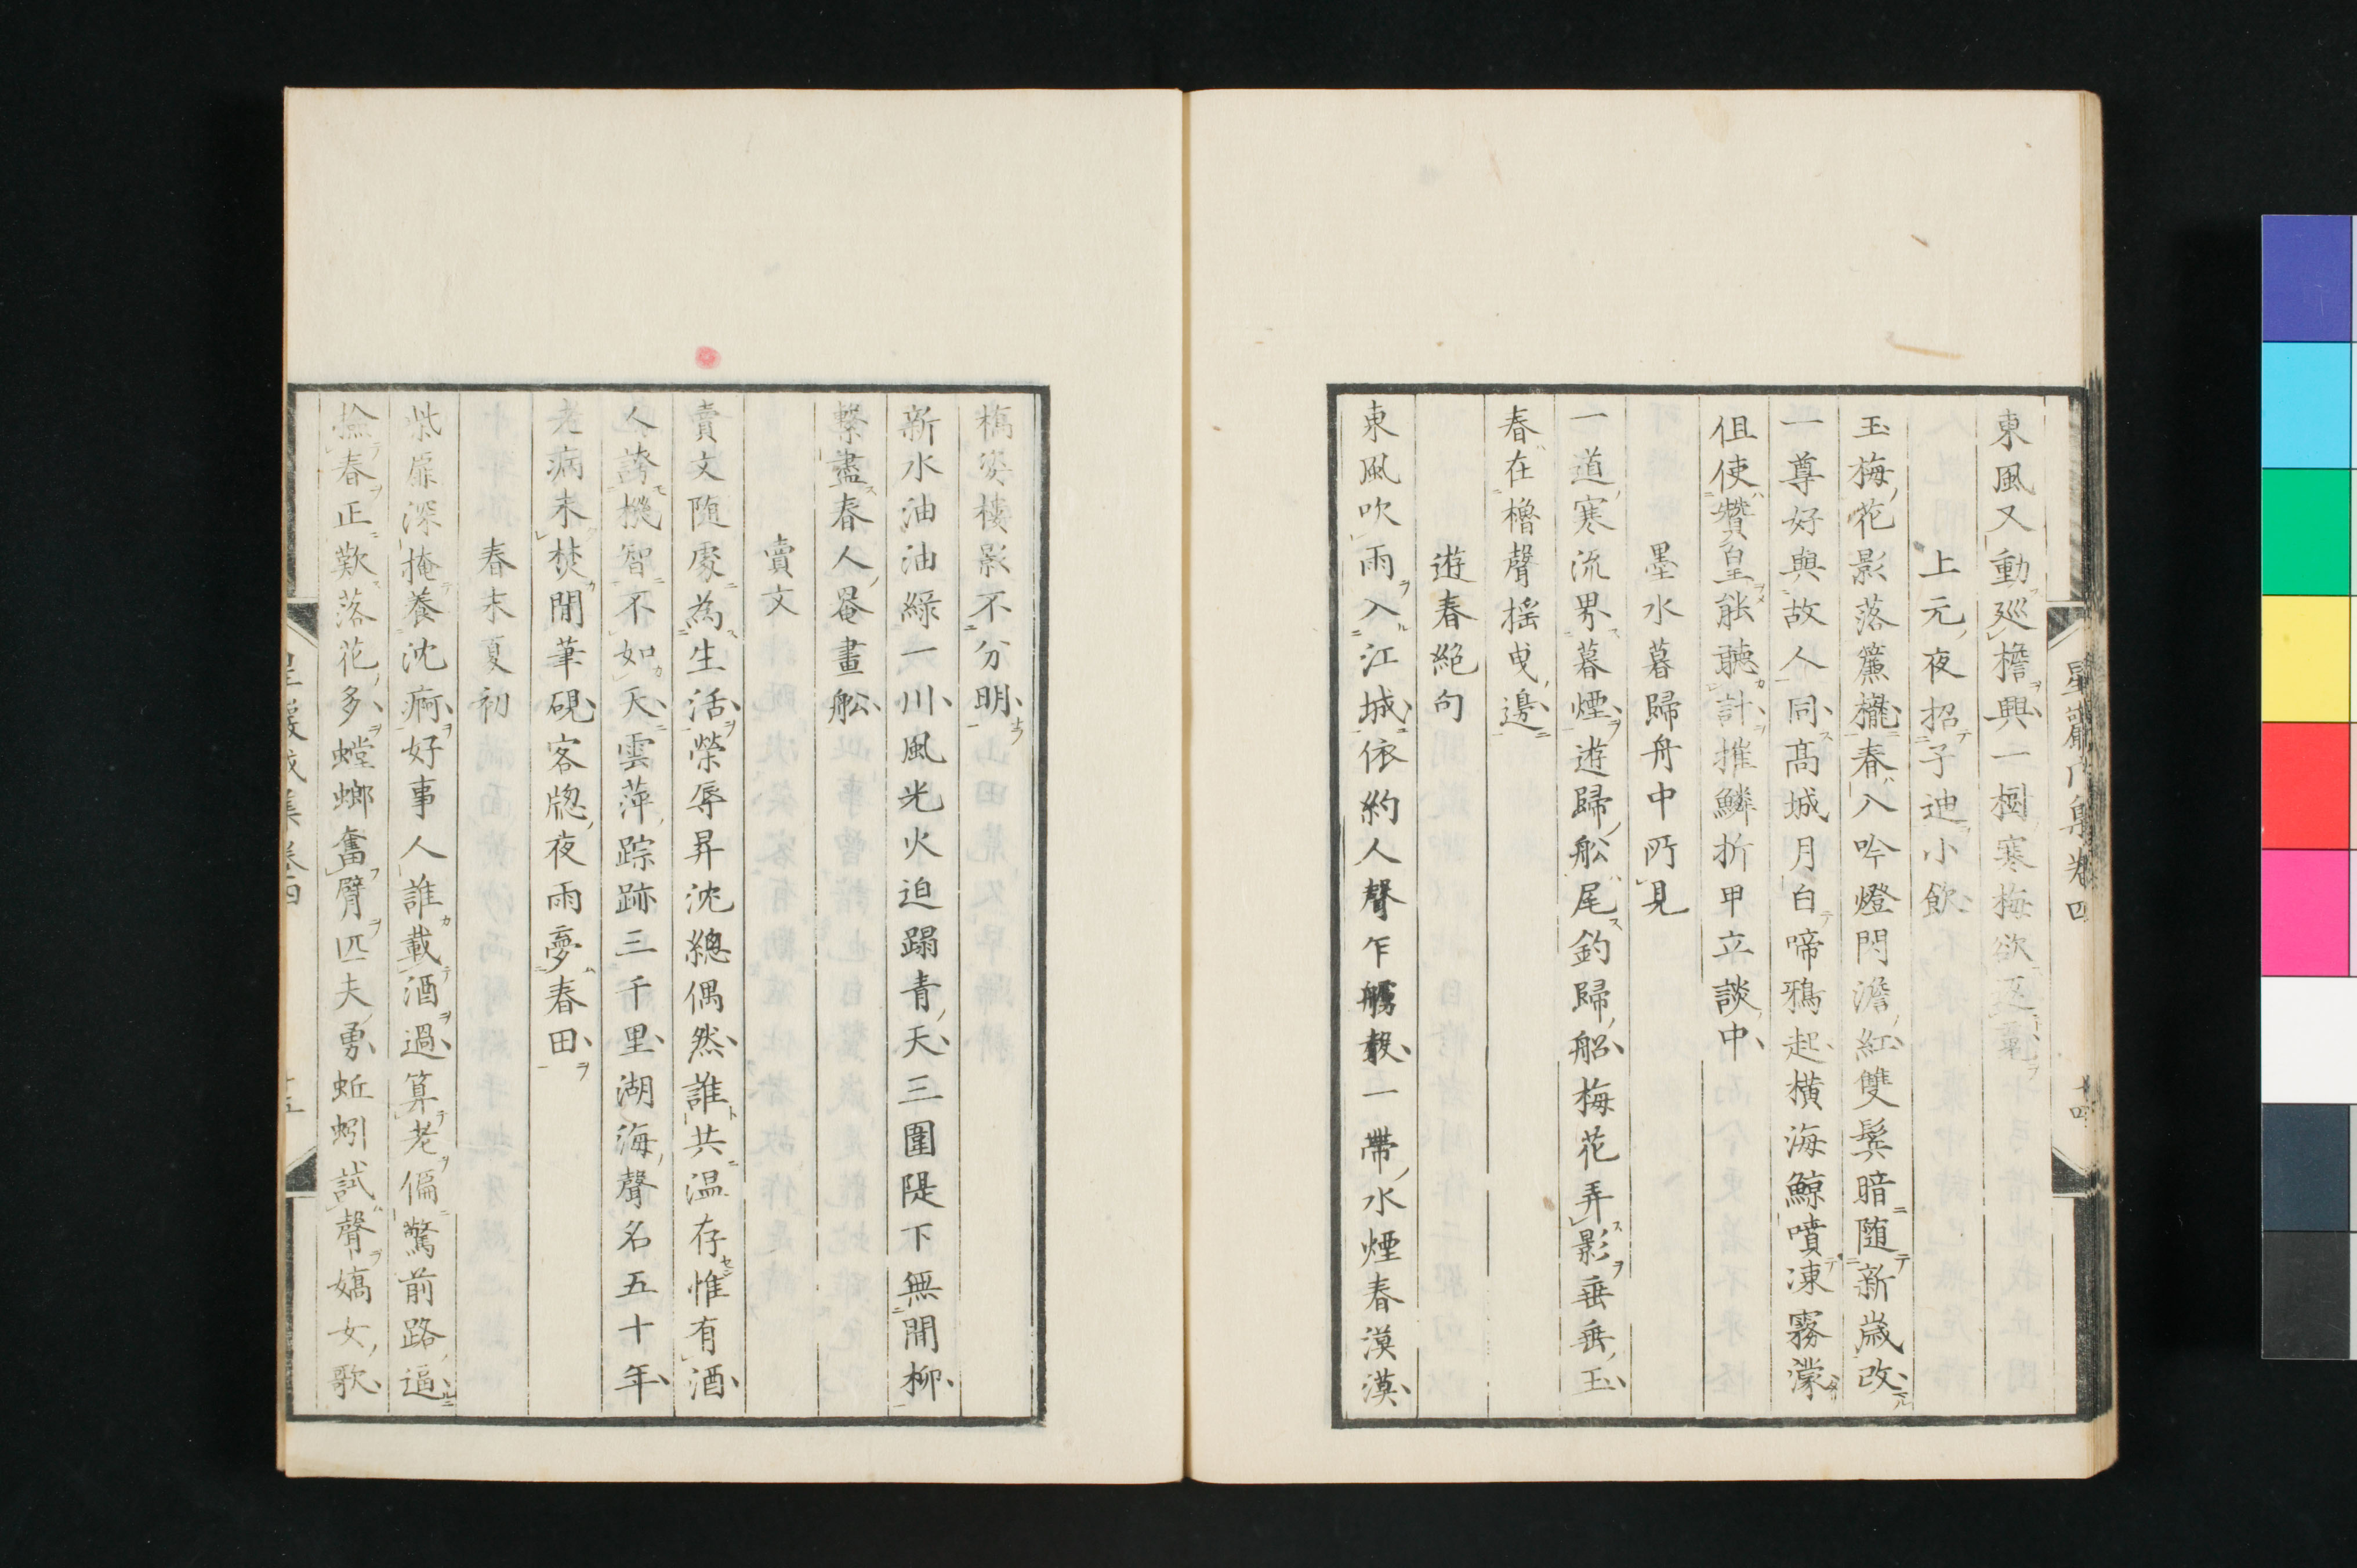 東風又動巡檐興一樹寒梅欲返覊
上元夜招子迪小飲
玉梅花影落簾櫳春入吟燈閃澹紅雙鬂暗隨新歲改
一尊好與故人同高城月白啼鴉起橫海鯨噴凍霧濛
但使贊皇能聽計摧鱗折甲立談中
墨水暮歸舟中所見
一道寒流界暮煙遊歸舩尾釣歸船梅花弄影垂垂玉
春在櫓聲搖曳邊
遊春絕句
東風吹雨入江城依約人聲乍櫓一帶水煙春漠漠
橋姿樓影不分明
新水油油綠一川風光火迫蹋青天三圍隄下無閒柳
繫盡春人罨畫舩
賣文
賣文隨處為生活榮辱昇沈總偶然誰共温存惟有酒
人誇機智不如天雲萍踪跡三千里湖海聲名五十年
老病未焚閒筆硯客牕夜雨夢春田
春末夏初
柴扉深掩養沈痾好事人誰載酒過算老偏驚前路逼
撿春正歎落花多螳螂奮臂匹夫勇蚯蚓試聲嬌女歌
星巖戊集卷四
十五